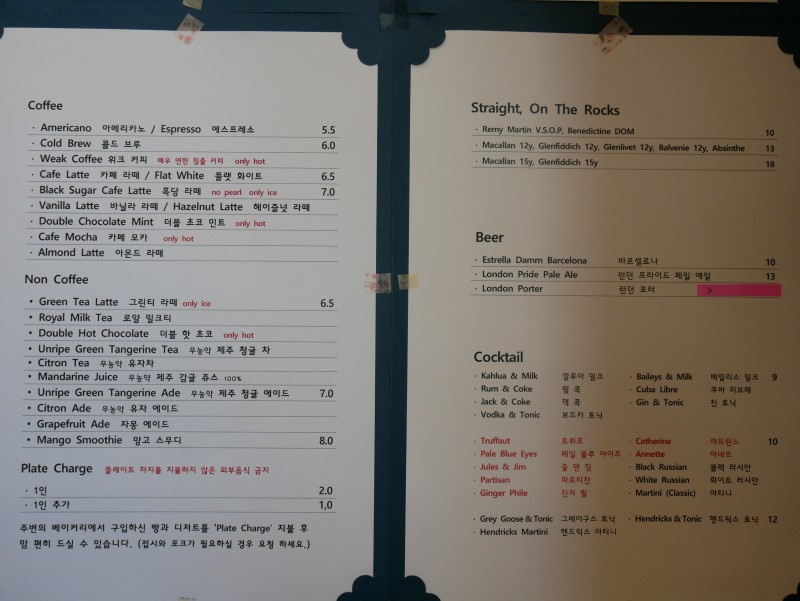 Coffee
· Americano 아메리카노 / Espresso 에스프레소 5.5
· Cold Brew 콜드 브루 6.0
· Weak Coffee 위크 커피 매우 연한 침출 커피 only hot
· Cafe Latte 카페 라떼 / Flat White 플랫 화이트 6.5
· Black Sugar Cafe Latte 흑당 라떼 no pearl only ice 7.0
· Vanilla Latte 바닐라 라떼 / Hazelnut Latte 헤이즐넛 라떼
· Double Chocolate Mint 더블 초코 민트 only hot
· Cafe Mocha 카페 모카 only hot
· Almond Latte 아몬드 라떼
Non Coffee
• Green Tea Latte 그린티 라떼 only ice 6.5
• Royal Milk Tea 로얄 밀크티
• Double Hot Chocolate 더블 핫 초코 only hot
• Unripe Green Tangerine Tea 무농약 제주 청귤 차
• Citron Tea 무농약 유자차
• Mandarine Juice 무농약 제주 감귤 쥬스 100%
• Unripe Green Tangerine Ade 무농약 제주 청귤 에이드 7.0
• Citron Ade 무농약 유자 에이드
• Grapefruit Ade 자몽 에이드
• Mango Smoothie 망고 스무디 8.0
Plate Charge 플레이트 차지를 지불하지 않은 외부음식 금지
· 1인 2.0
· 1인 추가 1,0
주변의 베이커리에서 구입하신 빵과 디저트를 'Plate Charge' 지불 후
맘 편히 드실 수 있습니다. (접시와 포크가 필요하실 경우 요청 하세요.)
Straight, On The Rocks
· Remy Martin V.S.O.P, Benedictine DOM 10
· Macallan 12y, Glenfiddich 12y, Glenlivet 12y, Balvenie 12y, Absinthe 13
· Macallan 15y, Glenfiddich 15y 18
Beer
· Estrella Damm Barcelona 바르셀로나 10
· London Pride Pale Ale 런던 프라이드 페일 에일 13
· London Porter 런던 포터 x
Cocktail
· Kahlua & Milk 깔루아 밀크 · Baileys & Milk 베일리스 밀크 9
· Rum & Coke 럼 콕 · Cuba Libre 쿠바 리브레
· Jack & Coke 잭 콕 · Gin & Tonic 진 토닉
· Vodka & Tonic 보드카 토닉
· Truffaut 트뤼포 · Catherine 까뜨린느 10
· Pale Blue Eyes 페일 블루 아이즈 · Annette 아네뜨
· Jules & Jim 줄 앤 짐 · Black Russian 블랙 러시안
· Partisan 파르티잔 · White Russian 화이트 러시안
· Ginger Phile 진저 필 · Martini (Classic) 마티니
· Grey Goose & Tonic 그레이구스 토닉 · Hendricks & Tonic 핸드릭스 토닉 12
· Hendricks Martini 핸드릭스 마티니